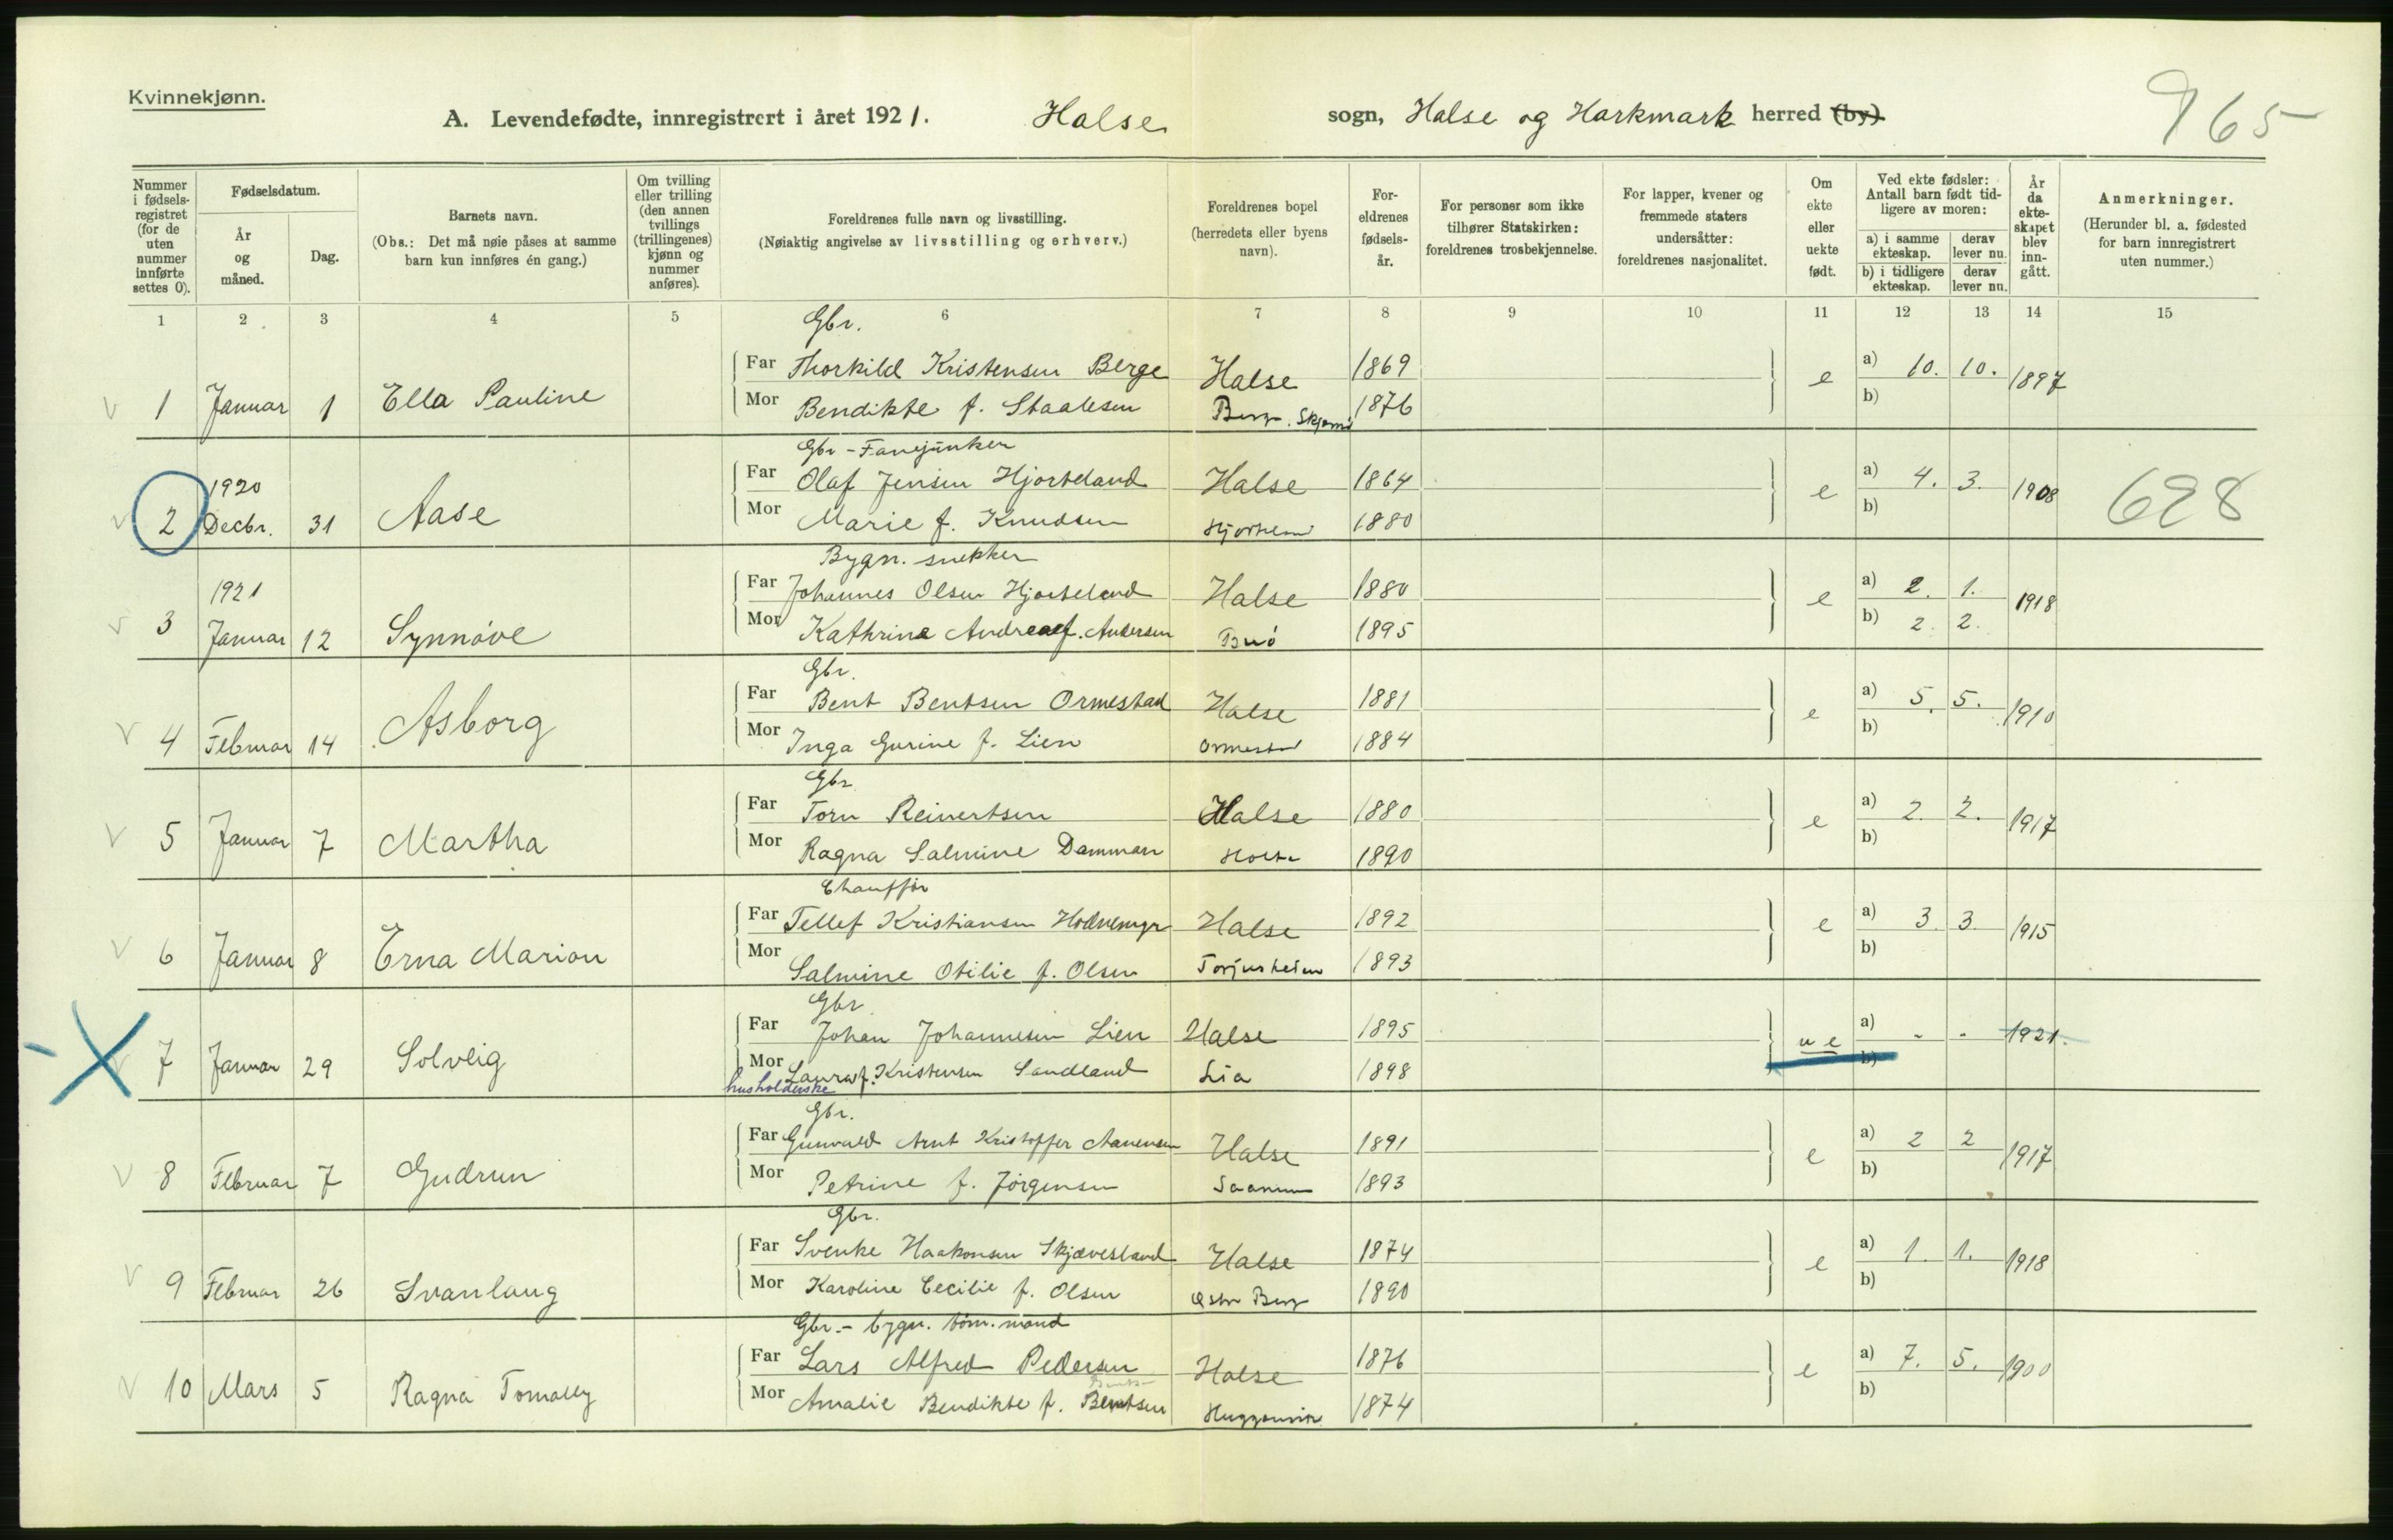 Kvinnekjønn.
A. Levendefødte, innregistrert i året 1921. Halse sogn, Halse og Harkmark herred (by)
965
Nummer i fødselsregistret (for de uten nummer innførte settes 0).
Fødselsdatum.
År og måned.
Dag.
Barnets navn.
(Obs.: Det må nøie påses at samme barn kun innføres én gang.)
Om tvilling eller trilling (den annen tvillings (trillingenes) kjønn og nummer anføres).
Foreldrenes fulle navn og livsstilling.
(Nøiaktig angivelse av livsstilling og erhverv.)
Foreldrenes bopel (herredets eller byens navn).
Foreldrenes fødselsår.
For personer som ikke tilhører Statskirken: foreldrenes trosbekjennelse.
For lapper, kvener og fremmede staters undersåtter: foreldrenes nasjonalitet.
Om ekte eller uekte født.
Ved ekte fødsler: Antall barn født tidligere av moren:
a) i samme ekteskap. derav lever nu.
b) i tidligere ekteskap. derav lever nu.
År da ekteskapet blev inngått.
Anmerkninger.
(Herunder bl. a. fødested for barn innregistrert uten nummer.)
1 2 3 4 5 6 7 8 9 10 11 12 13 14 15
Gbr.
Far Thorkild Kristensen Berge Halse 1869 a) 10. 10.
v 1 Januar 1 Ella Pauline e 1897
Mor Bendikte f. Staalesen Berge. Skjernø 1876 b)
Gbr - Fanejunker
1920 Far Olaf Jensen Hjorteland Halse 1864 a) 4. 3.
v 2 Decbr. 31 Aase e 1908 698
Mor Marie f. Knudsen 1880 b)
Bygn. snekker
1921 Far Johannes Olsen Hjorteland Halse 1880 a) 2. 1.
v 3 Januar 12 Synnøve e 1918
Mor Kathrine Andrea f. Andersen Buø 1895 b) 2. 2.
Gbr.
Far Bent Bentsen Ormestad Halse 1881 a) 5. 5.
v 4 Februar 14 Asborg e 1910
Mor Inga Gurine f. Lien Ormestad 1884 b)
Gbr
Far Torn Reinertsen Halse 1880 a) 2. 2.
v 5 Januar 7 Martha e 1917
Mor Ragna Salmine Damman Holte 1890 b)
Chauffør
Far Tellef Kristiansen Hodnemyr Halse 1892 a) 3. 3.
v 6 Januar 8 Erna Marion e 1915
Mor Salmine Otilie f. Olsen Torjusheien 1893 b)
Gbr
Far Johan Johannesen Lien Halse 1895 a) - - 1921.
v 7 Januar 29 Solveig u e
Mor Laura f. Kristensen Sandland Lia 1898 b)
husholderske
Gbr.
Far Gunvald Arnt Kristoffer Aanensen Halse 1891 a) 2 2
v 8 Februar 7 Gudrun e 1917
Mor Petrine f. Jörgensen Saanum 1893 b)
Gbr.
Far Svenke Haakonsen Skjævesland Halse 1874 a) 1. 1.
v 9 Februar 26 Svanlaug e 1918
Mor Karoline Cecilie f. Olsen 1890 b)
Gbr. - bygn. tøm. mand
Far Lars Alfred Pedersen Halse 1876 a) 7. 5.
v 10 Mars 5 Ragna e 1900
Mor Amalie Bendikte f. Bentsen 1874 b)